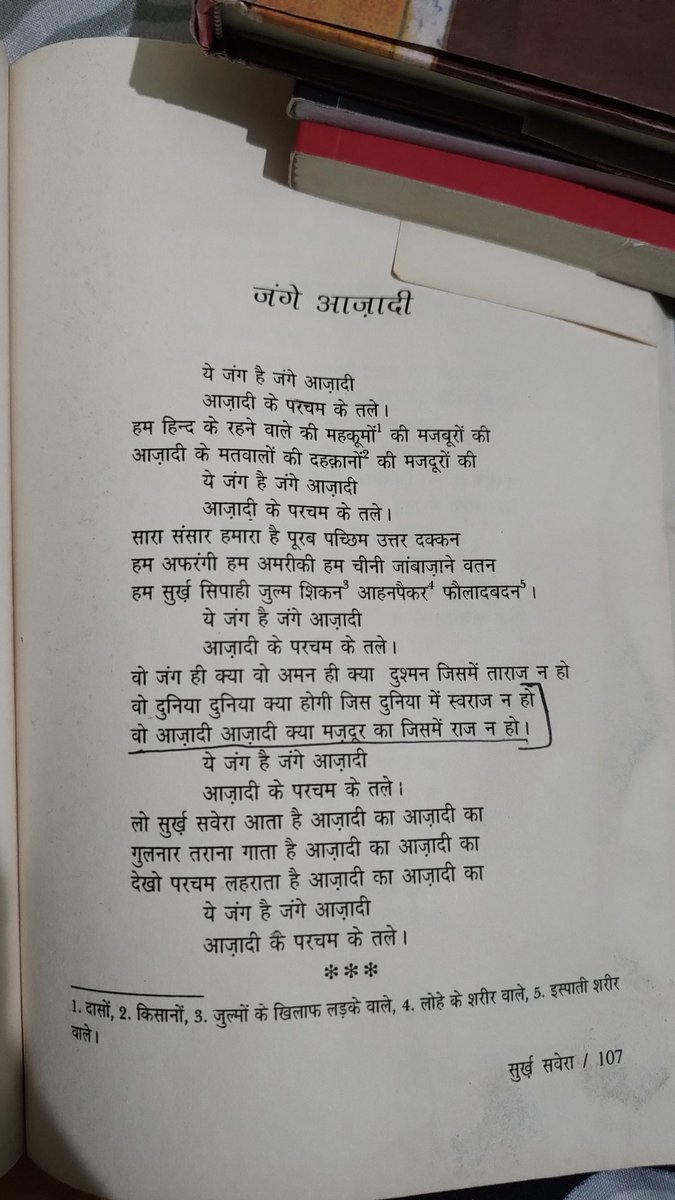 जंगे आज़ादी
ये जंग है जंगे आज़ादी
आज़ादी के परचम के तले।
हम हिन्द के रहने वाले की महकूमों¹ की मजबूरों की
आज़ादी के मतवालों की दहक़ानों² की मजदूरों की
ये जंग है जंगे आज़ादी
आज़ादी के परचम के तले।
सारा संसार हमारा है पूरब पच्छिम उत्तर दक्कन
हम अफरंगी हम अमरीकी हम चीनी जांबाज़ाने वतन
हम सुर्ख़ सिपाही जुल्म शिकन³ आहनपैकर⁴ फौलादबदन⁵।
ये जंग है जंगे आज़ादी
आज़ादी के परचम के तले।
वो जंग ही क्या वो अमन ही क्या दुश्मन जिसमें ताराज न हो
वो दुनिया दुनिया क्या होगी जिस दुनिया में स्वराज न हो
वो आज़ादी आज़ादी क्या मज़दूर का जिसमें राज न हो।
ये जंग है जंगे आज़ादी
आज़ादी के परचम के तले।
लो सुर्ख़ सवेरा आता है आज़ादी का आज़ादी का
गुलनार तराना गाता है आज़ादी का आज़ादी का
देखो परचम लहराता है आज़ादी का आज़ादी का
ये जंग है जंगे आज़ादी
आज़ादी के परचम के तले।
***
1. दासों, 2. किसानों, 3. जुल्मों के खिलाफ लड़के वाले, 4. लोहे के शरीर वाले, 5. इस्पाती शरीर
वाले।
सुर्ख़ सवेरा / 107